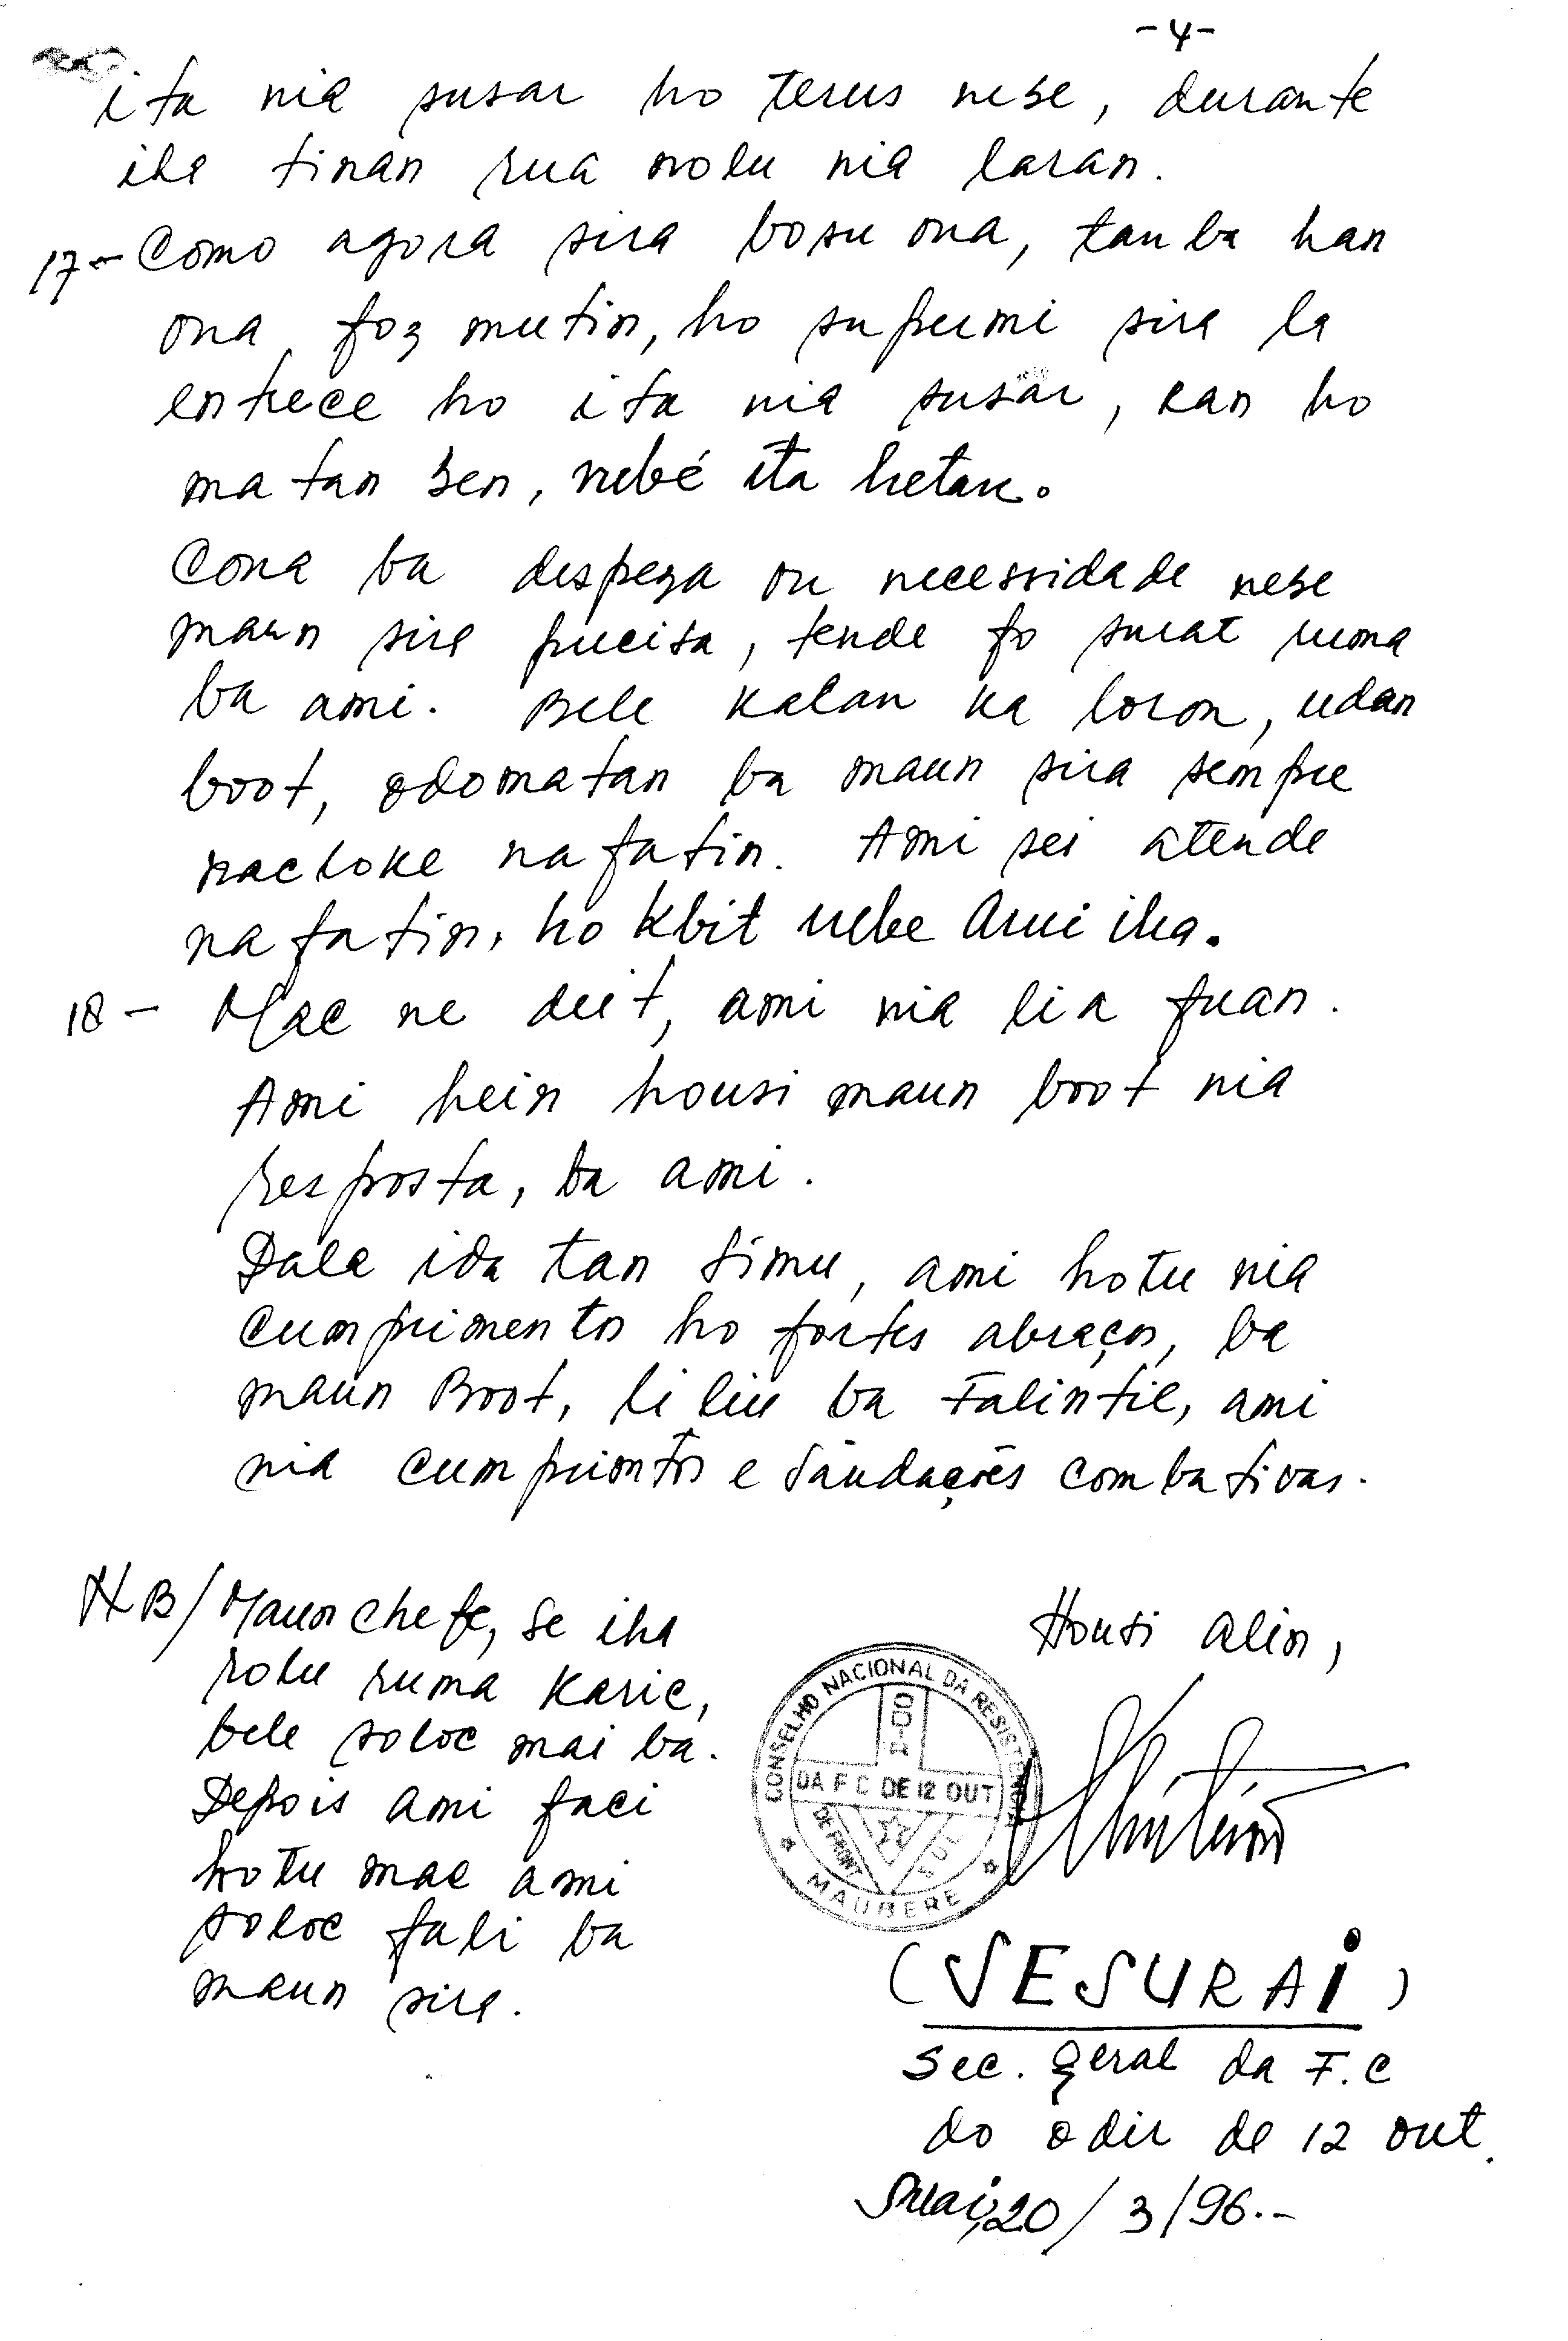 -4-
ita nia susar ho terus nebe, durante
iha tinan rua nolu nia laran.
17- Como agora sira bosu ona, tanba han
ona foz mutin, ho supermi sira la
entrece ho ita nia susar, ran ho
matan ben, nebé ita hetan.
Cona ba despeza ou necessidade nebe
maun sira precisa, tende fo surat ruma
ba ami. Bele kalan ka loron, udan
boot, odomatan ba maun sira sempre
nacloke nafatin. Ami sei atende
nafatin, ho kbit nebe Ami iha.
18- Mac ne deit, ami nia lia fuan.
Ami hein housi maun boot nia
resposta, ba ami.
Dala ida tan simu, ami hotu nia
cumprimentos ho fortes abraços, ba
maun Boot, liliu ba Falintil, ami
nia cumprimtos e saudações combativas.
NB/ Maun chefe, se iha
rolu ruma karic,
bele soloc mai ba.
Depois ami faci
hotu mac ami
soloc fali ba
maun sira.
Housi alin,
CONSELHO NACIONAL DA RESISTENCIA
MAUBERE
DA F C DE 12 OUT
DE FRONT
SUL
(SESURAI)
Sec. Geral da F.C
do odir de 12 out.
Suai, 20/3/96.-